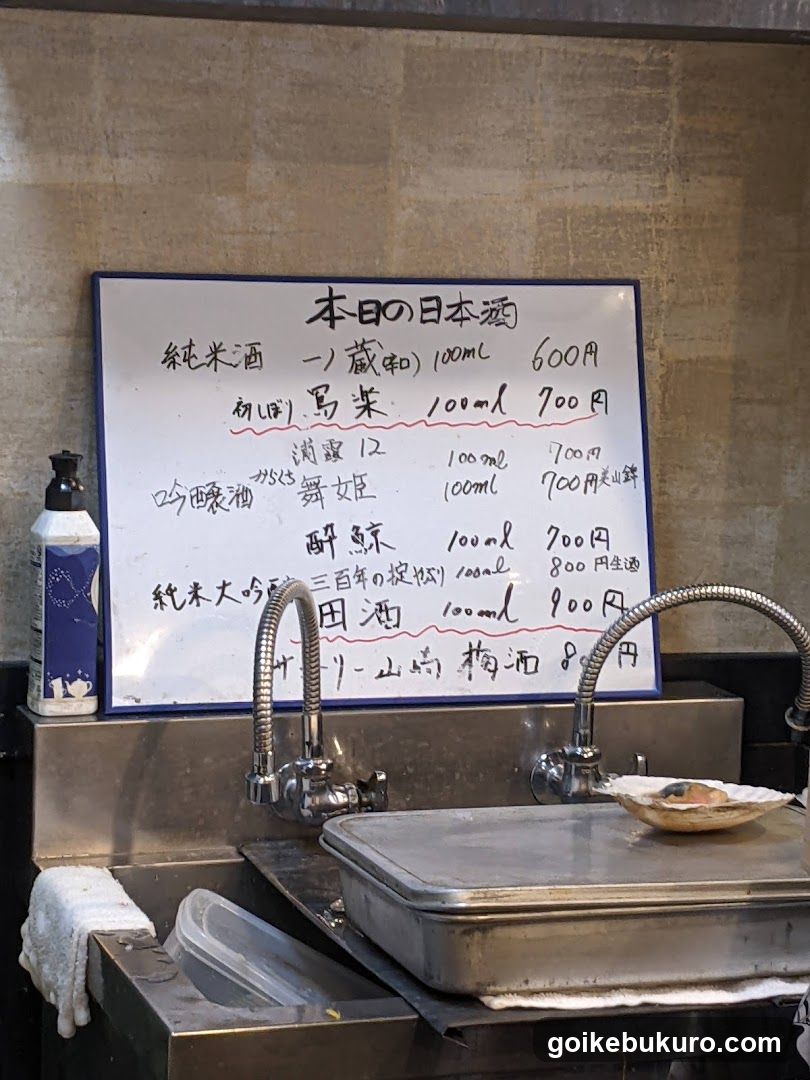 本日の日本酒
純米酒 一ノ蔵(和) 100ml 600円
初しぼり 寫楽 100ml 700円
浦霞 12 100ml 700円
吟醸酒 からくち 舞姫 100ml 700円 美山錦
酔鯨 100ml 700円
三百年の掟やぶり 100ml 800円 生酒
純米大吟 田酒 100ml 900円
サ トリー山崎 梅酒 8 円
goikebukuro.com